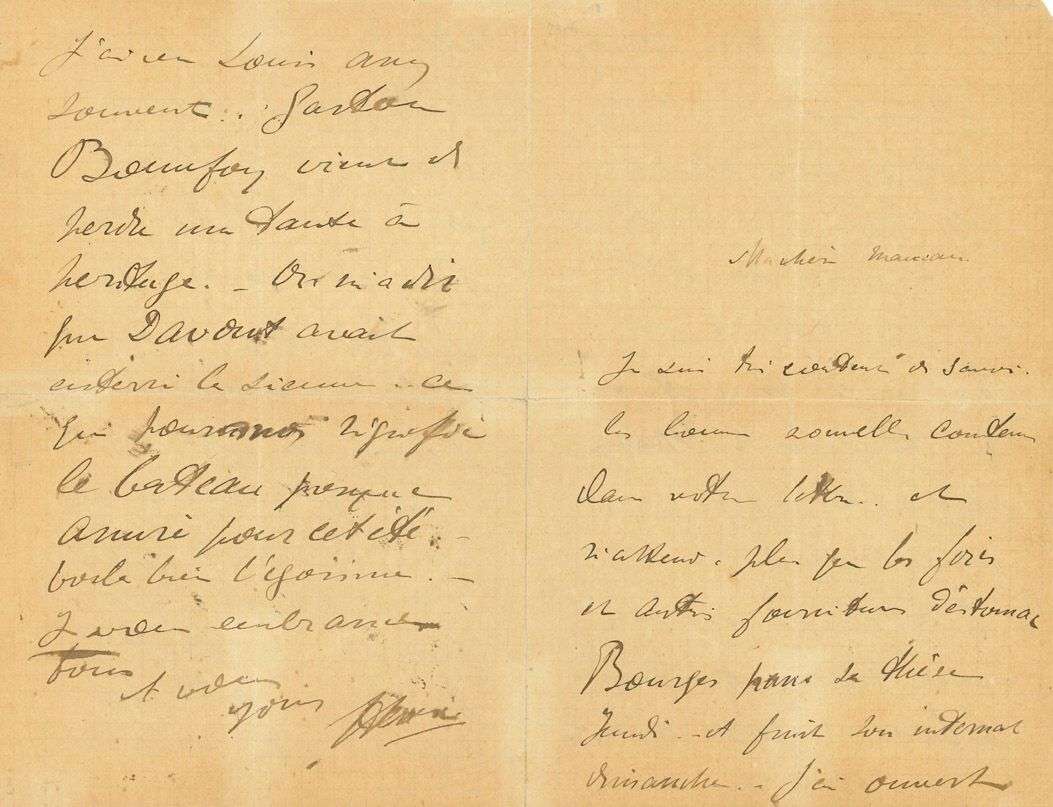 Ma chère maman
Je suis très content de savoir
les bonnes nouvelles contenues
dans votre lettre. et
n'attends plus que les foies
et autres fournitures d'estomac
Bourges passe sa thèse
Jeudi. - et finit son internat
dimanche. - J'ai ouvert
J'ai vu Louis assez
souvent. Gaston
Bonnefoy vient de
perdre une tante à
héritage. - On m'a dit
que Davoust avait
enterré la sienne.. ce
qui pour nous signifie
le bateau presque
assuré pour cet été. -
voilà bien l'égoïsme. -
Je vous embrasse
tous
et vous
yours
Henri